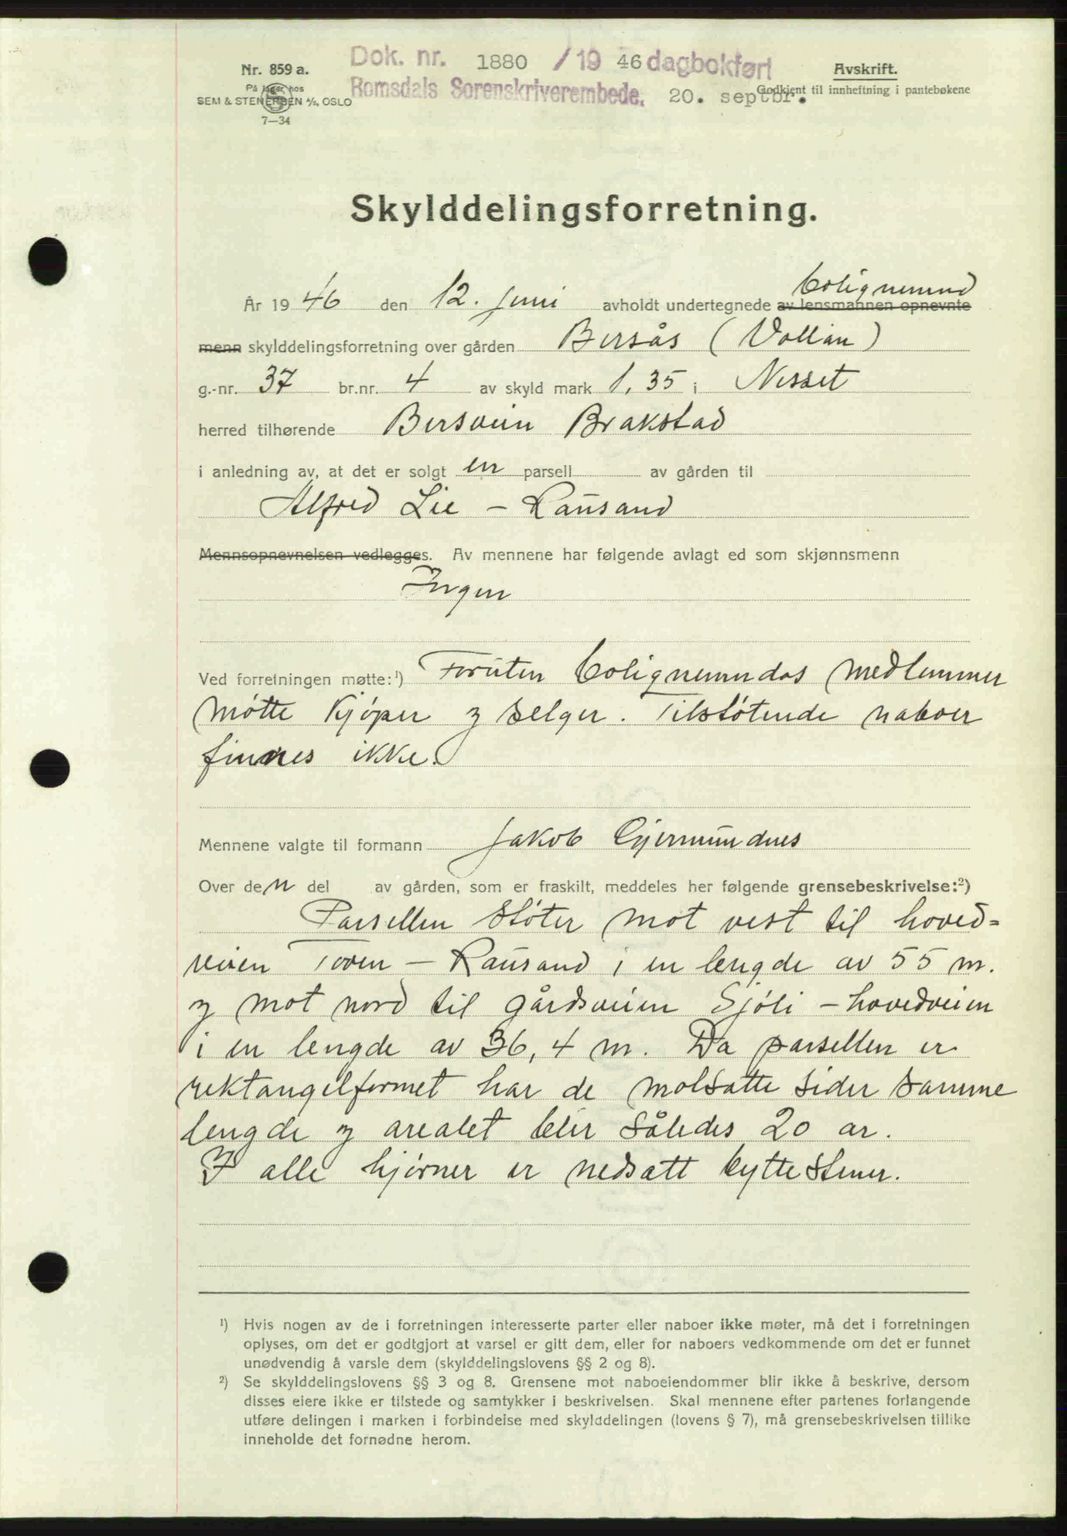 Dok. nr. 1880 / 19 46 dagbokført
Romsdals Sorenskriverembede, 20. septbr.
Nr. 859 a.
På lager hos
SEM & STENERSEN A/S, OSLO
7—34
Avskrift.
Godkjent til innheftning i pantebøkene
Skylddelingsforretning.
År 19 46 den 12. juni avholdt undertegnede av lensmannen opnevnte bolignemnd
menn skylddelingsforretning over gården Bersås (Vollan)
g.-nr. 37 br.nr. 4 av skyld mark 1,35 i Nesset
herred tilhørende Bersvein Brakstad
i anledning av, at det er solgt en parsell av gården til
Alfred Lie – Rausand
Mennsopnevnelsen vedlegges. Av mennene har følgende avlagt ed som skjønnsmenn
Ingen
Ved forretningen møtte:¹) Foruten bolignemndas medlemmer
møtte kjøper og selger. Tilstøtende naboer
finnes ikke.
Mennene valgte til formann Jakob Gjermundnes
Over den del av gården, som er fraskilt, meddeles her følgende grensebeskrivelse:²)
Parsellen støter mot vest til hoved=
veien Toven – Rausand i en lengde av 55 m.
og mot nord til gårdsveien Sjøli – hovedveien
i en lengde av 36,4 m. Da parsellen er
rektangelformet har de motsatte sider samme
lengde og arealet blir således 20 ar.
I alle hjørner er nedsatt byttestener.
¹) Hvis nogen av de i forretningen interesserte parter eller naboer ikke møter, må det i forretningen
oplyses, om det er godtgjort at varsel er gitt dem, eller for naboers vedkommende om det er funnet
unødvendig å varsle dem (skylddelingslovens §§ 2 og 8).
²) Se skylddelingslovens §§ 3 og 8. Grensene mot naboeiendommer blir ikke å beskrive, dersom
disses eiere ikke er tilstede og samtykker i beskrivelsen. Skal mennene efter partenes forlangende
utføre delingen i marken i forbindelse med skylddelingen (lovens § 7), må grensebeskrivelsen tillike
inneholde det fornødne herom.